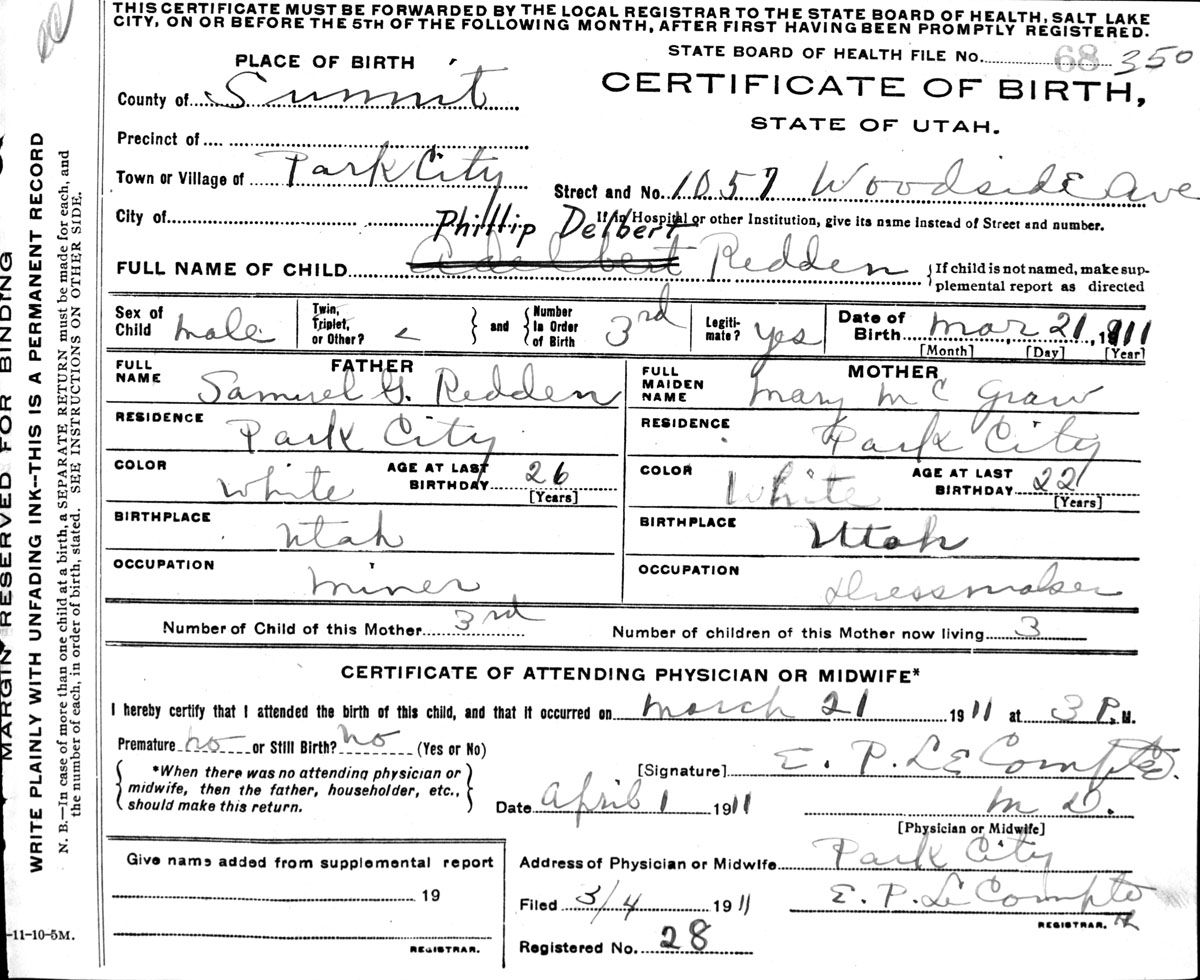 THIS CERTIFICATE MUST BE FORWARDED BY THE LOCAL REGISTRAR TO THE STATE BOARD OF HEALTH, SALT LAKE
CITY, ON OR BEFORE THE 5TH OF THE FOLLOWING MONTH, AFTER FIRST HAVING BEEN PROMPTLY REGISTERED.
STATE BOARD OF HEALTH FILE No. 68 350
PLACE OF BIRTH
CERTIFICATE OF BIRTH,
STATE OF UTAH.
County of Summit
Precinct of
Town or Village of Park City
Street and No. 1057 Woodside Ave
City of
If in Hospital or other Institution, give its name instead of Street and number.
Phillip Delbert
FULL NAME OF CHILD Adelbert Redden
If child is not named, make sup-
plemental report as directed
Sex of Child male
Twin, Triplet, or Other?
and Number In Order of Birth 3rd
Legiti-mate? yes
Date of Birth Mar 21, 1911
[Month] [Day] [Year]
FATHER
FULL NAME Samuel G. Redden
RESIDENCE Park City
COLOR White AGE AT LAST BIRTHDAY 26 [Years]
BIRTHPLACE Utah
OCCUPATION Miner
MOTHER
FULL MAIDEN NAME Mary McGraw
RESIDENCE Park City
COLOR White AGE AT LAST BIRTHDAY 22 [Years]
BIRTHPLACE Utah
OCCUPATION Dressmaker
Number of Child of this Mother 3rd
Number of children of this Mother now living 3
CERTIFICATE OF ATTENDING PHYSICIAN OR MIDWIFE*
I hereby certify that I attended the birth of this child, and that it occurred on March 21 1911 at 3 P. M.
Premature no or Still Birth? no (Yes or No)
*When there was no attending physician or
midwife, then the father, householder, etc.,
should make this return.
[Signature] E. P. LeCompte.
Date April 1 1911
M D.
[Physician or Midwife]
Give name added from supplemental report
19
REGISTRAR.
Address of Physician or Midwife Park City
Filed 3/4 1911
E. P. LeCompte
REGISTRAR.
Registered No. 28
-11-10-5M.
MARGIN RESERVED FOR BINDING
WRITE PLAINLY WITH UNFADING INK--THIS IS A PERMANENT RECORD
N. B.—In case of more than one child at a birth, a SEPARATE RETURN must be made for each, and
the number of each, in order of birth, stated. SEE INSTRUCTIONS ON OTHER SIDE.